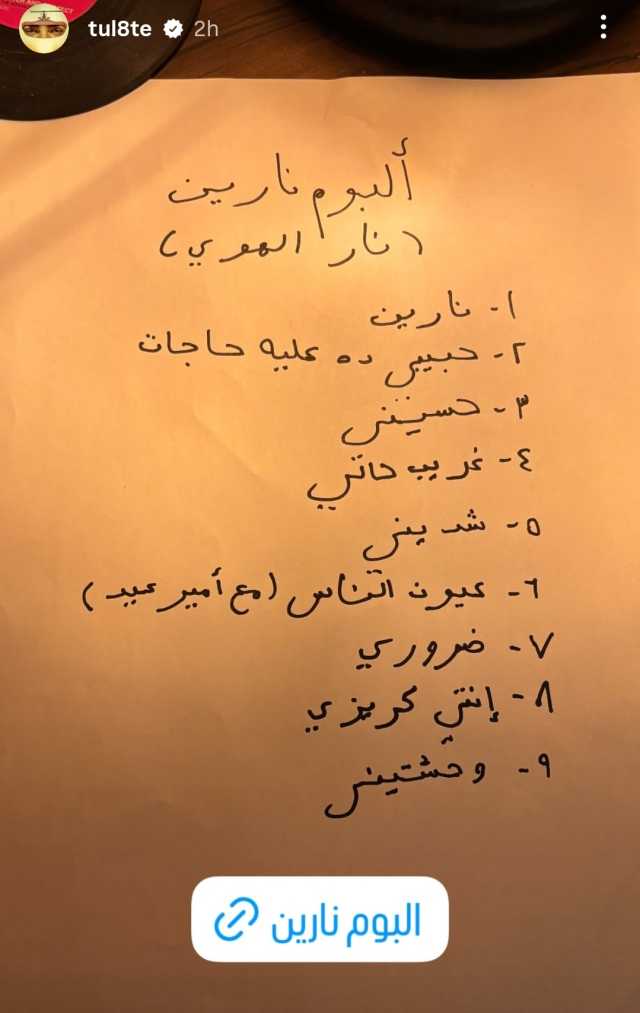 tul8te 2h
ألبوم نارين
(نار الهوي)
١- نارين
٢- حبيبي ده عليه حاجات
٣- حسيبني
٤- غريب حالتي
٥- شديني
٦- عيون الناس (مع أمير عيد)
٧- ضروري
٨- إنتي كريزي
٩- وحشتيني
البوم نارين